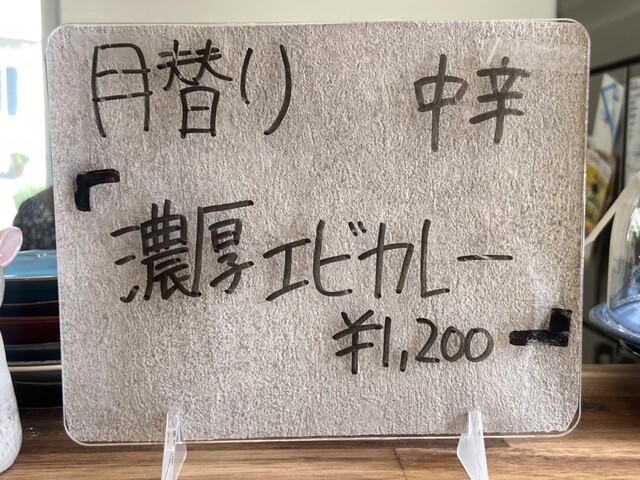 月替り 中辛
「濃厚エビカレー
¥1,200」